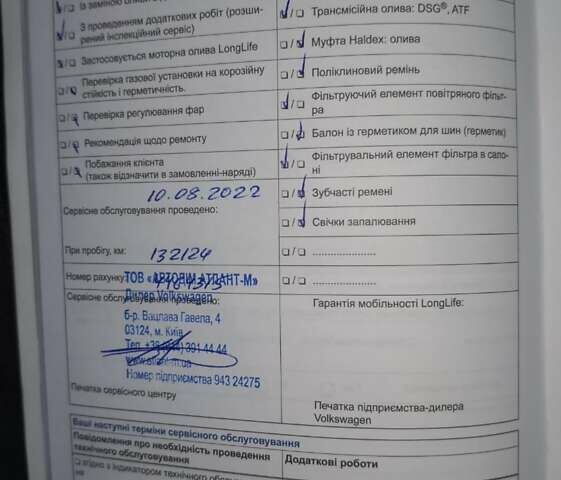 із заміною оливи
З проведенням додаткових робіт (розши-
рений інспекційний сервіс)
Застосовується моторна олива LongLife
Перевірка газової установки на корозійну
стійкість і герметичність.
Перевірка регулювання фар
Рекомендація щодо ремонту
Побажання клієнта
(також відзначити в замовленні-наряді)
10.08.2022
Сервісне обслуговування проведено:
При пробігу, км:
132124
Номер рахунку:
ТОВ «АВТОДІМ АТЛАНТ-М»
Дилер Volkswagen
Сервісне обслуговування проведено:
б-р. Вацлава Гавела, 4
03124, м. Київ
Тел. +38 (044) 391 44 44
Номер підприємства 943 24275
Печатка сервісного центру
Трансмісійна олива: DSG®, ATF
Муфта Haldex: олива
Поліклиновий ремінь
Фільтруючий елемент повітряного фільт-
ра
Балон із герметиком для шин (герметик)
Фільтрувальний елемент фільтра в сало-
ні
Зубчасті ремені
Свічки запалювання
.....................
.....................
Гарантія мобільності LongLife:
Печатка підприємства-дилера
Volkswagen
Ваші наступні терміни сервісного обслуговування
Повідомлення про необхідність проведення
технічного обслуговування
Додаткові роботи
згідно з індикатором технічного обслуго